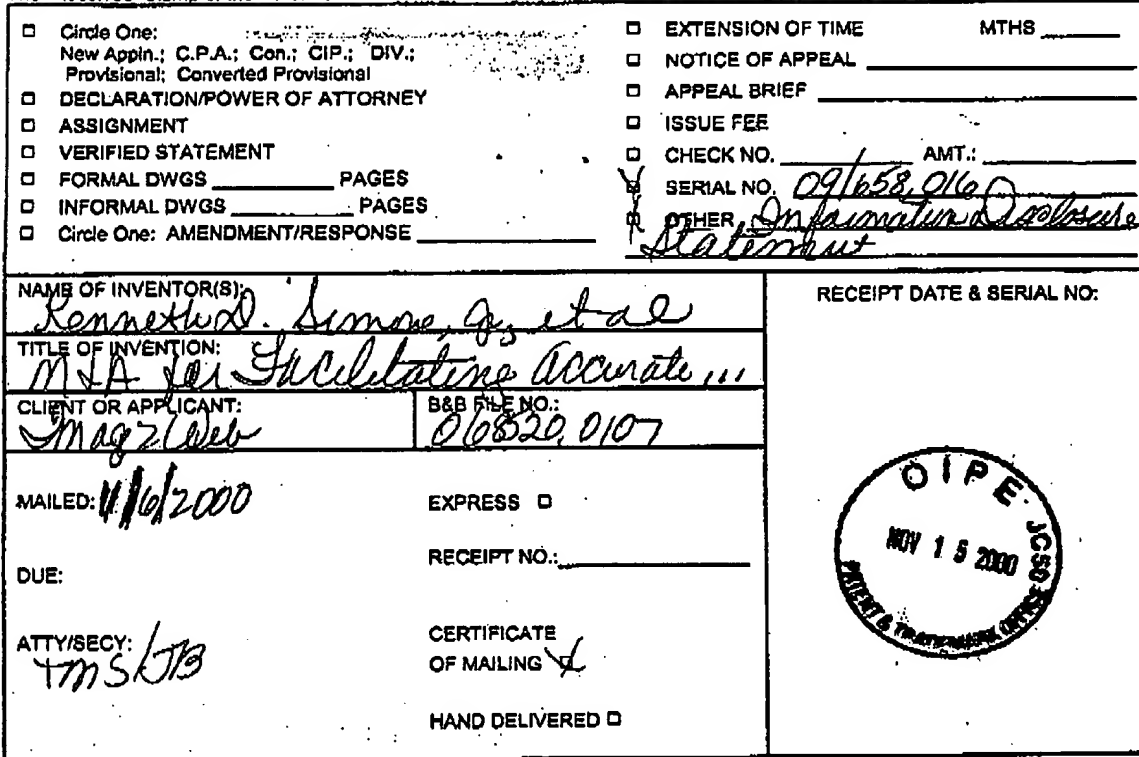 ☐ Circle One:
New Appln.; C.P.A.; Con.; CIP.; DIV.;
Provisional; Converted Provisional
☐ DECLARATION/POWER OF ATTORNEY
☐ ASSIGNMENT
☐ VERIFIED STATEMENT
☐ FORMAL DWGS ________ PAGES
☐ INFORMAL DWGS ________ PAGES
☐ Circle One: AMENDMENT/RESPONSE ________
☐ EXTENSION OF TIME MTHS ________
☐ NOTICE OF APPEAL ________
☐ APPEAL BRIEF ________
☐ ISSUE FEE
☐ CHECK NO. ________ AMT.: ________
SERIAL NO. 09/658,016
OTHER Information Disclosure
Statement
NAME OF INVENTOR(S):
Kenneth D. Simone, Jr., et al
TITLE OF INVENTION:
M&A for Facilitating Accurate ...
CLIENT OR APPLICANT:
Imag2Web
B&B FILE NO.:
068520.0107
MAILED: 11/6/2000
EXPRESS ☐
RECEIPT NO.: ________
DUE:
ATTY/SECY:
TMS/JB
CERTIFICATE
OF MAILING
HAND DELIVERED ☐
RECEIPT DATE & SERIAL NO:
OIPE JC50
NOV 15 2000
PATENT & TRADEMARK OFFICE